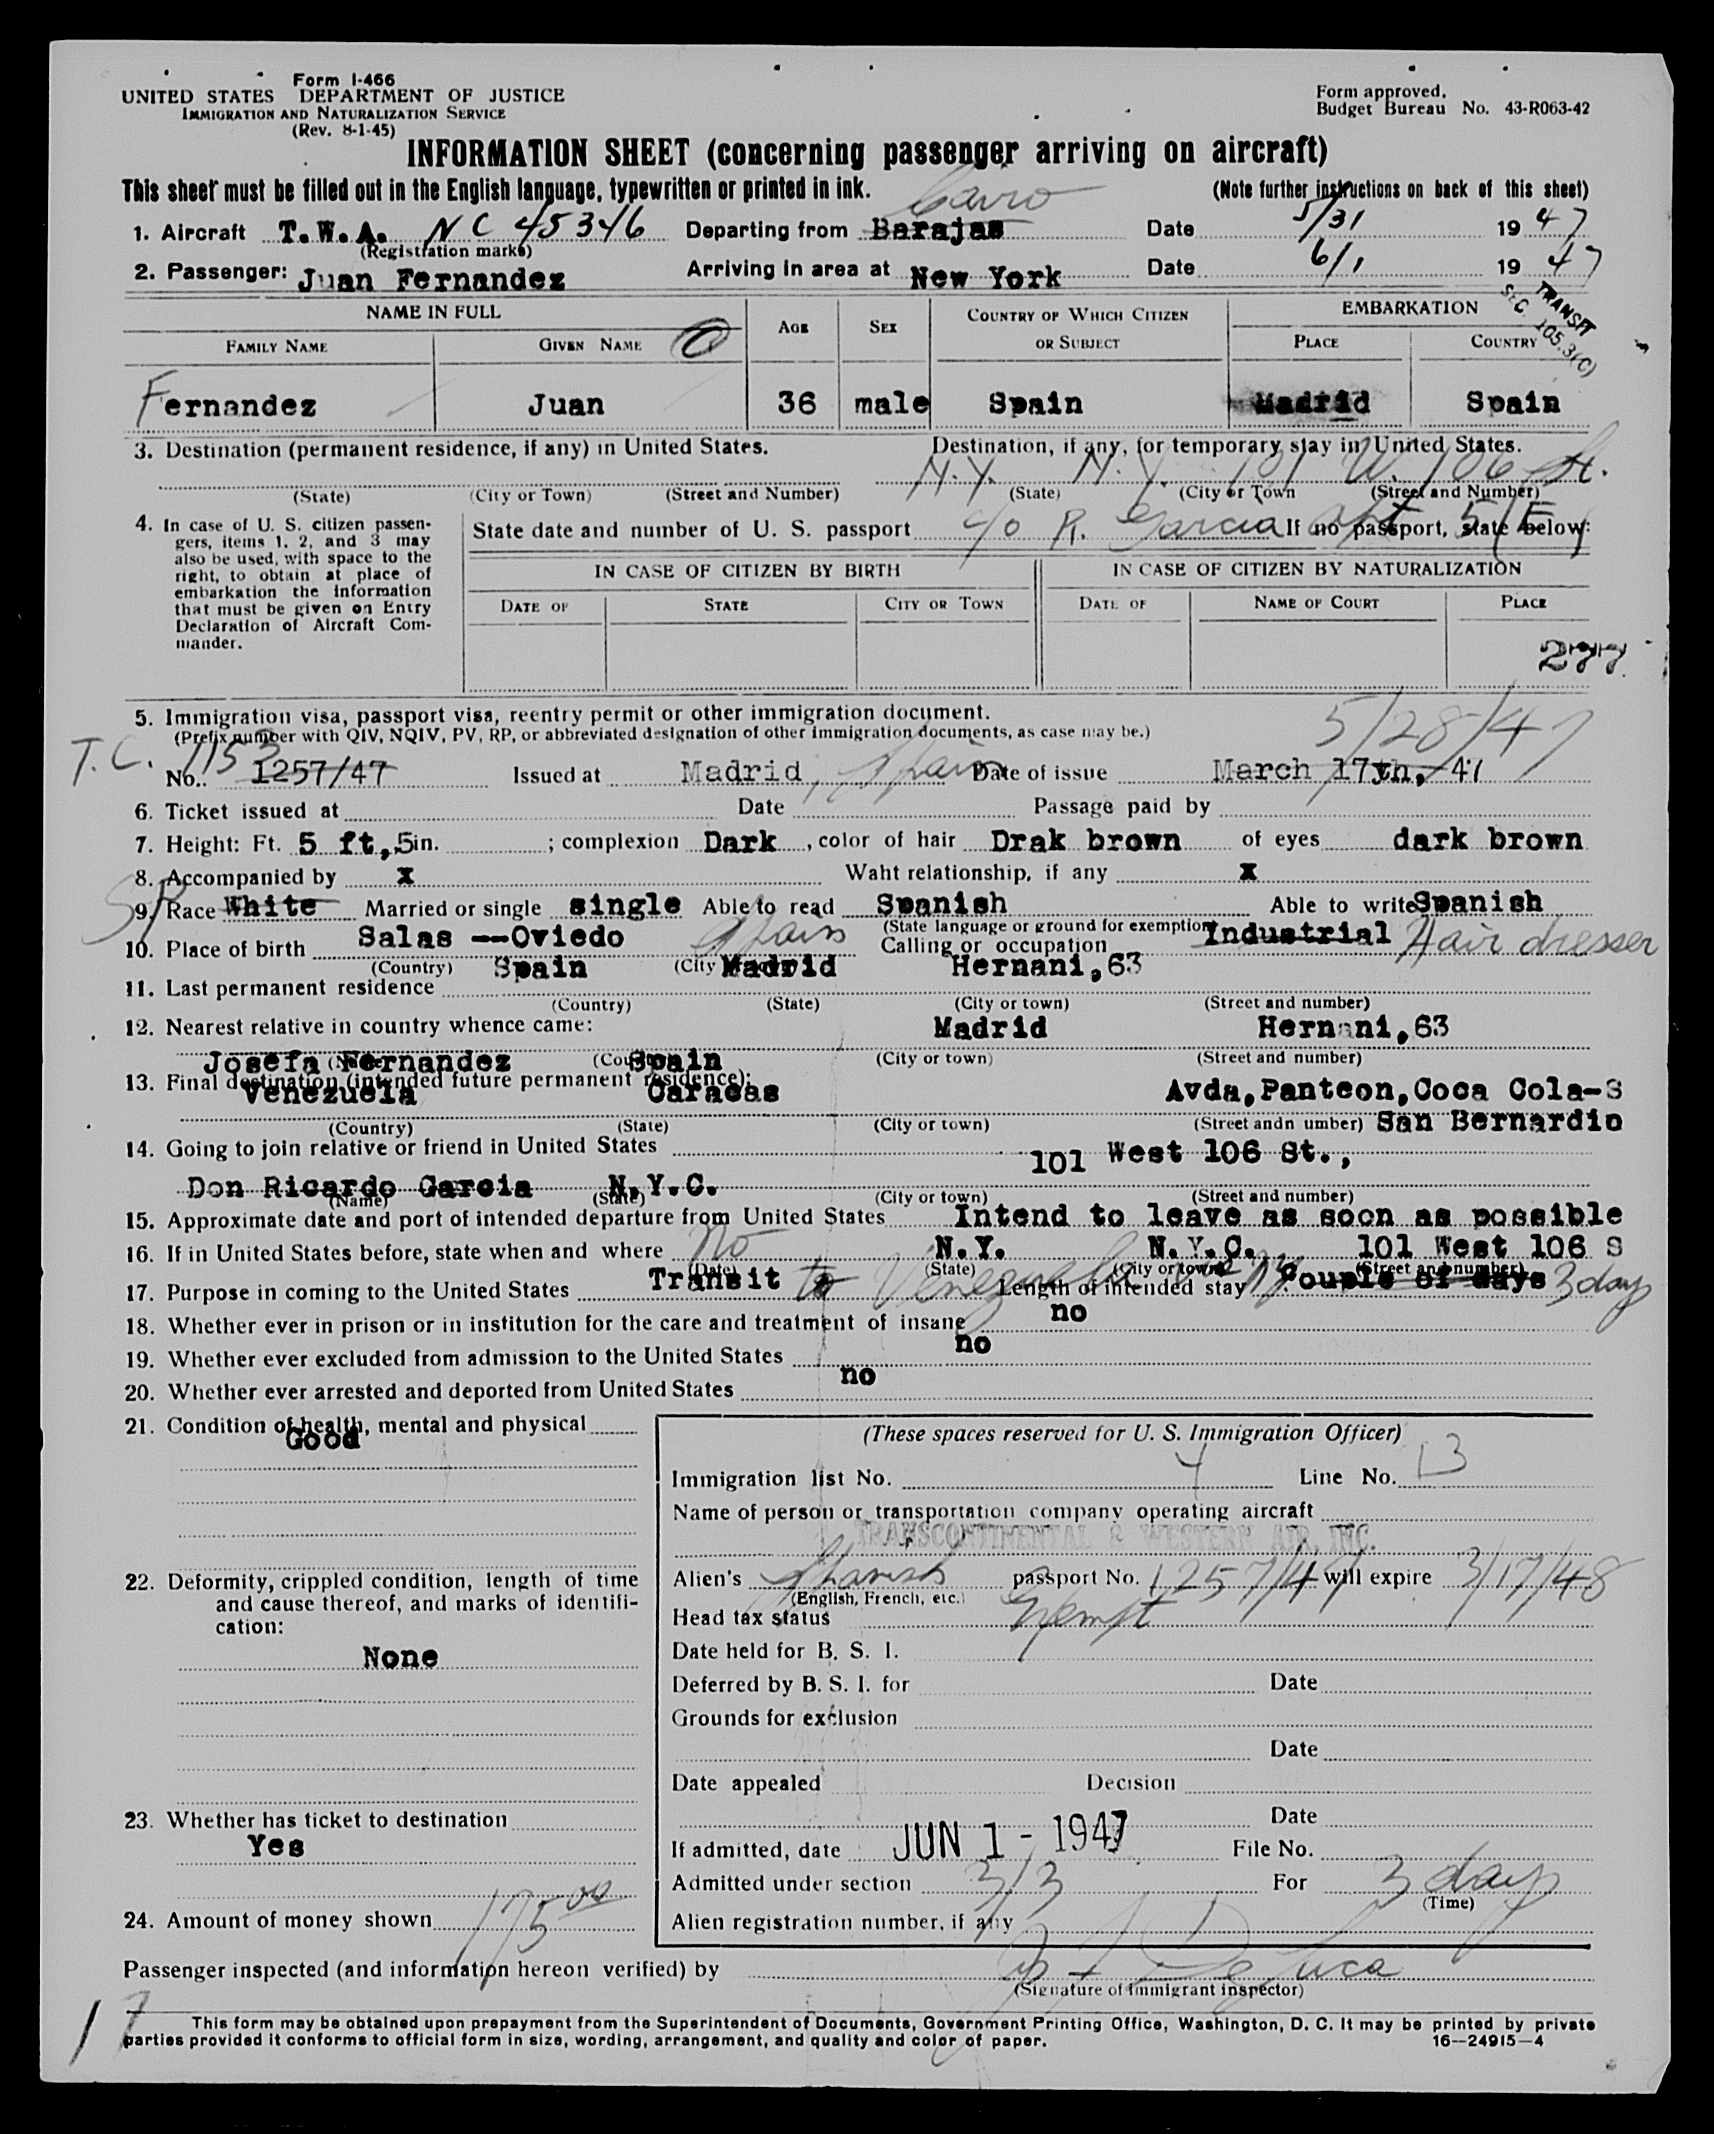 Form I-466
UNITED STATES DEPARTMENT OF JUSTICE
IMMIGRATION AND NATURALIZATION SERVICE
(Rev. 8-1-45)
Form approved.
Budget Bureau No. 43-R063-42
INFORMATION SHEET (concerning passenger arriving on aircraft)
This sheet must be filled out in the English language, typewritten or printed in ink. (Note further instructions on back of this sheet)
Cairo
1. Aircraft T.W.A. NC 45346 Departing from Barajas Date 5/31 1947
(Registration marks)
2. Passenger: Juan Fernandez Arriving in area at New York Date 6/1 1947
TRANSIT
SEC. 105.3(C)
NAME IN FULL AGE SEX COUNTRY OF WHICH CITIZEN OR SUBJECT EMBARKATION
FAMILY NAME GIVEN NAME PLACE COUNTRY
Fernandez Juan 36 male Spain Madrid Spain
3. Destination (permanent residence, if any) in United States. Destination, if any, for temporary stay in United States.
N.Y. N.Y. 101 W. 106 St.
(State) (City or Town) (Street and Number) (State) (City or Town (Street and Number)
4. In case of U. S. citizen passen-
gers, items 1, 2, and 3 may
also be used, with space to the
right, to obtain at place of
embarkation the information
that must be given on Entry
Declaration of Aircraft Com-
mander.
State date and number of U. S. passport c/o R. Garcia Apt 5/E If no passport, state below:
IN CASE OF CITIZEN BY BIRTH IN CASE OF CITIZEN BY NATURALIZATION
DATE OF STATE CITY OR TOWN DATE OF NAME OF COURT PLACE
277
5. Immigration visa, passport visa, reentry permit or other immigration document.
(Prefix number with QIV, NQIV, PV, RP, or abbreviated designation of other immigration documents, as case may be.)
T.C. 1153 5/28/47
No. 1257/47 Issued at Madrid, Spain Date of issue March 17th, 47
6. Ticket issued at Date Passage paid by
7. Height: Ft. 5 ft,5in. ; complexion Dark , color of hair Drak brown of eyes dark brown
8. Accompanied by X Waht relationship, if any X
SP
9. Race White Married or single single Able to read Spanish Able to write Spanish
(State language or ground for exemption
10. Place of birth Salas --Oviedo Spain Calling or occupation Industrial Hair dresser
(Country) (City
11. Last permanent residence Spain Madrid Hernani,63
(Country) (State) (City or town) (Street and number)
12. Nearest relative in country whence came: Madrid Hernani,63
Josefa Fernandez Spain
(City or town) (Street and number)
13. Final destination (intended future permanent residence):
Venezuela Caracas Avda,Panteon,Coca Cola-S
San Bernardio
(Country) (State) (City or town) (Street andn umber)
14. Going to join relative or friend in United States 101 West 106 St.,
Don Ricardo Garcia N.Y.C.
(Name) (State) (City or town) (Street and number)
15. Approximate date and port of intended departure from United States Intend to leave as soon as possible
16. If in United States before, state when and where no N.Y. N.Y.C. 101 West 106 S
(Date) (State) (City or town) (Street and number)
17. Purpose in coming to the United States Transit to Venezuela Length of intended stay Couple of days 3 days
18. Whether ever in prison or in institution for the care and treatment of insane no
19. Whether ever excluded from admission to the United States no
20. Whether ever arrested and deported from United States no
21. Condition of health, mental and physical
Good
22. Deformity, crippled condition, length of time
and cause thereof, and marks of identifi-
cation:
None
23. Whether has ticket to destination
Yes
24. Amount of money shown 175 00
(These spaces reserved for U. S. Immigration Officer)
Immigration list No. 4 Line No. 13
Name of person or transportation company operating aircraft
TRANSCONTINENTAL & WESTERN AIR, INC.
Alien's Spanish passport No. 1257/47 will expire 3/17/48
(English, French, etc.)
Head tax status Exempt
Date held for B. S. I.
Deferred by B. S. I. for Date
Grounds for exclusion
Date
Date appealed Decision
Date
If admitted, date JUN 1 - 1947 File No.
Admitted under section 3/3 For 3 days
(Time)
Alien registration number, if any
Passenger inspected (and information hereon verified) by
(Signature of immigrant inspector)
17
This form may be obtained upon prepayment from the Superintendent of Documents, Government Printing Office, Washington, D. C. It may be printed by private
parties provided it conforms to official form in size, wording, arrangement, and quality and color of paper. 16—24915—4